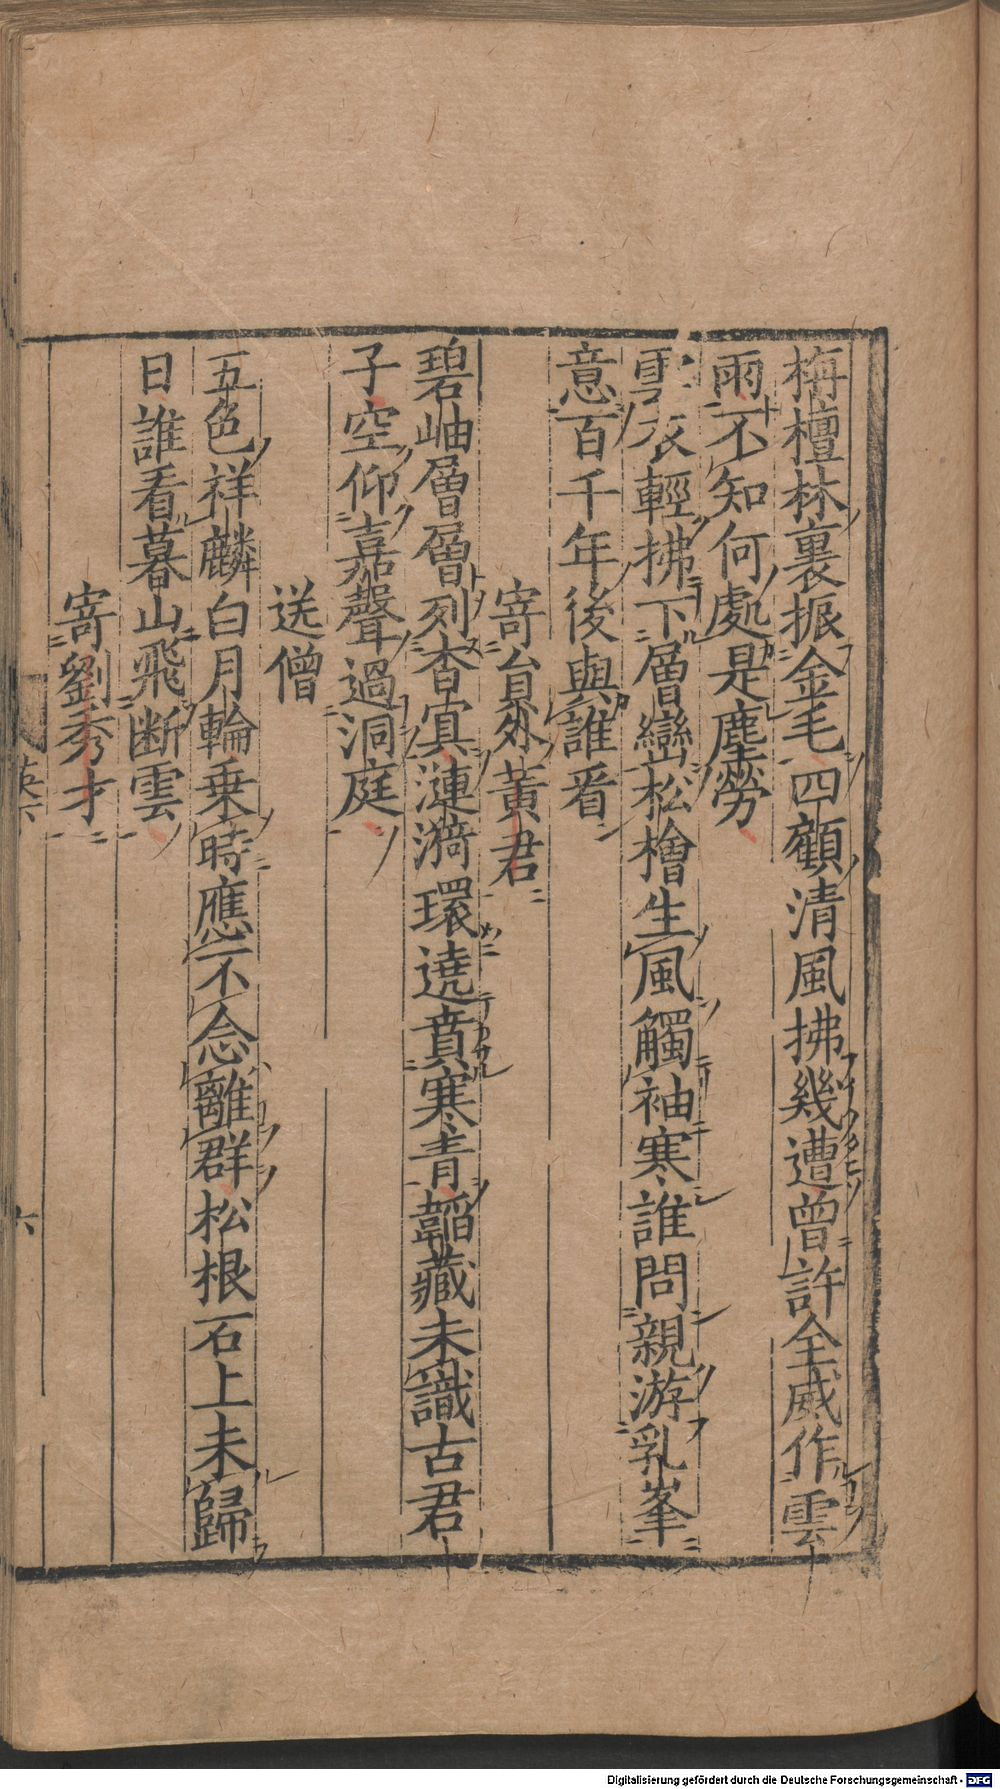 栴檀林裏振金毛四顧清風拂幾遭曾許全威作雲
雨不知何處是塵勞
雲衣輕拂下層巒松檜生風觸袖寒誰問親游乳峯
意百千年後與誰看
寄員外黃君
碧岫層層列杳冥漣漪環遶賁寒青韜藏未識古君
子空仰嘉聲過洞庭
送僧
五色祥麟白月輪乗時應不念離群松根石上未歸
日誰看暮山飛断雲
寄劉秀才
英六
六
Digitalisierung gefördert durch die Deutsche Forschungsgemeinschaft - DFG